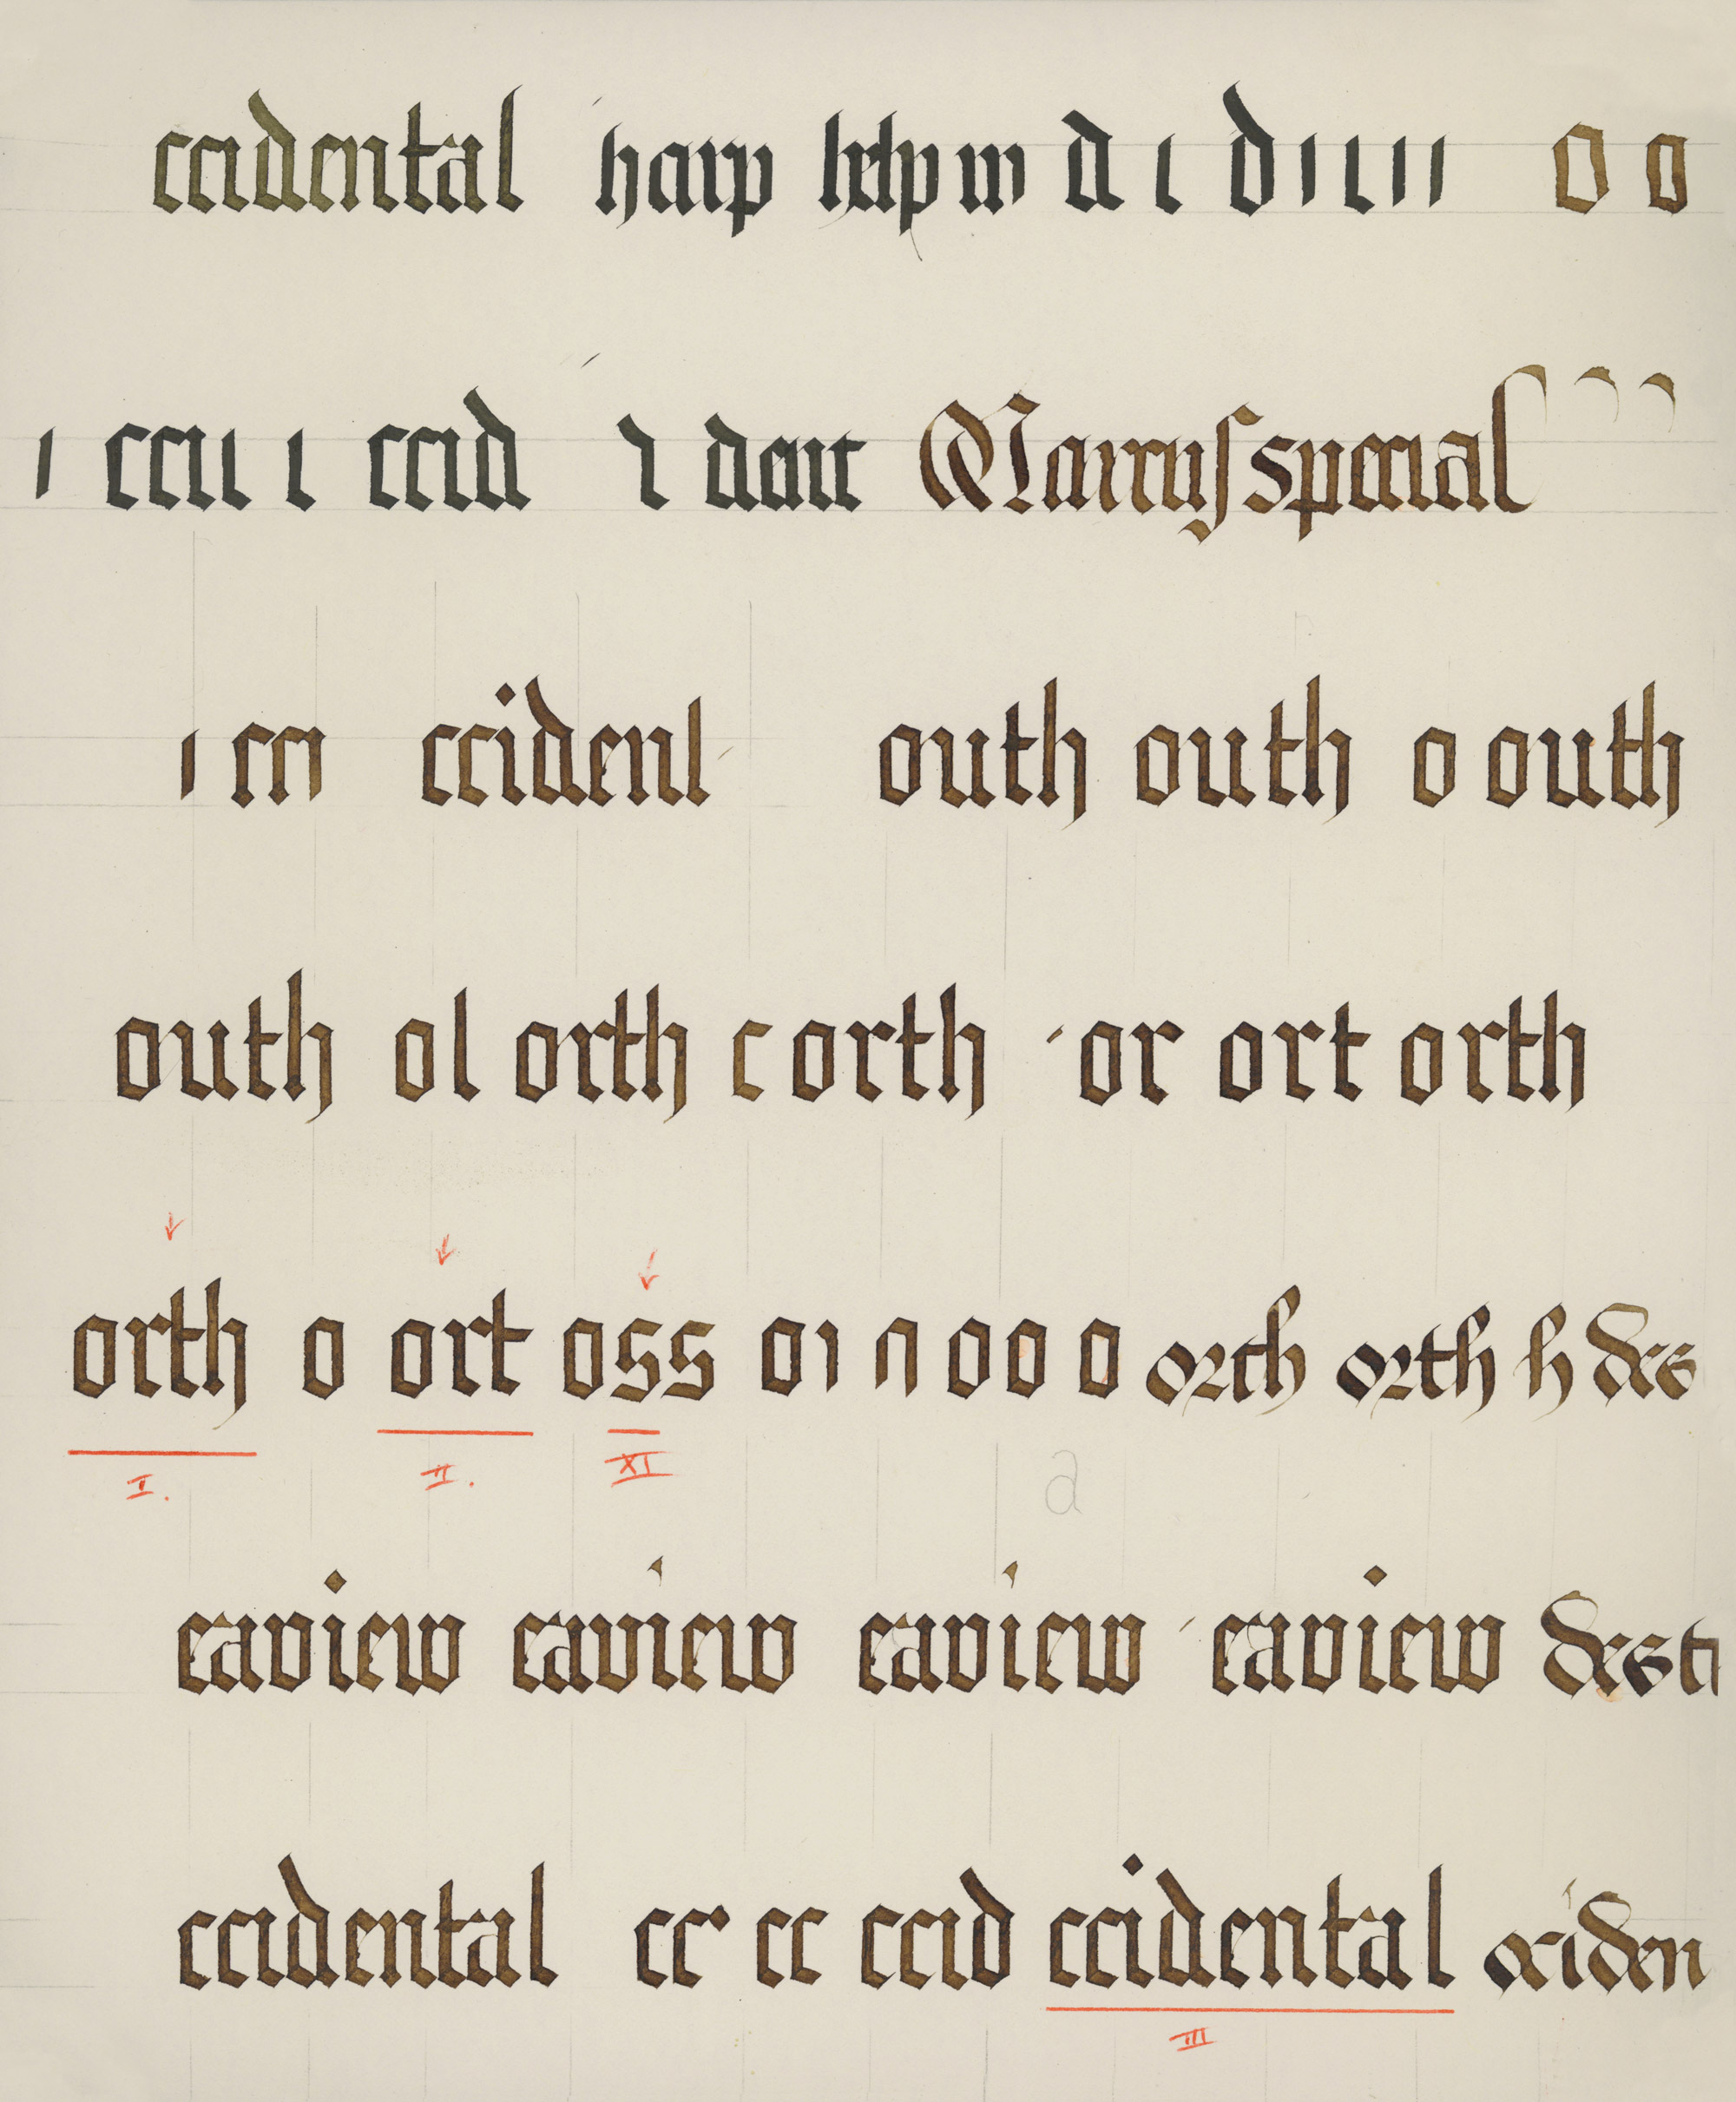 ccidental harp helpm d ı d ı ı ı ı o o
ı ccıı ı ccid ı dent Marcus special
ı crı ccident outh outh o outh
outh ol orth c orth or ort orth
orth o ort oss oı n o o o orth orth h des
I. II. XI a
eaview eaview eaview eaview dest
ccidental cc cc ccid ccidental cciden
III